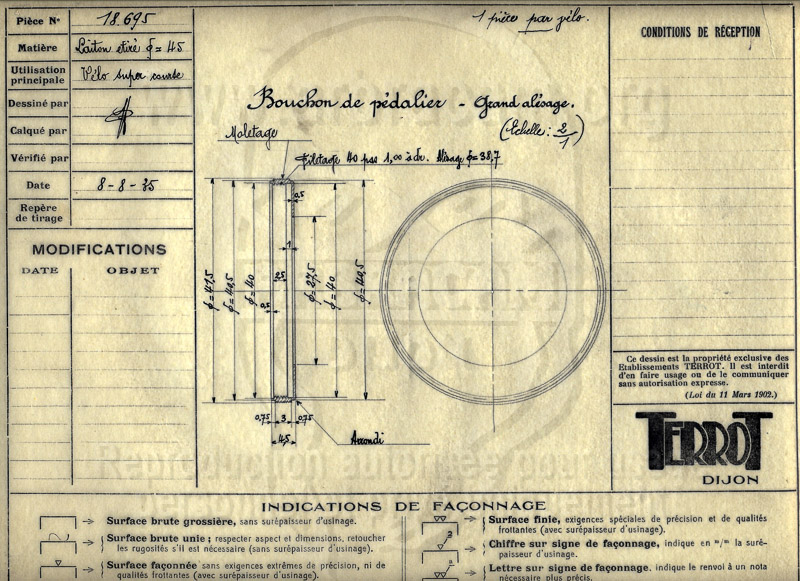 Pièce Nº 18.695
Matière Laiton étiré ϕ = 45
Utilisation principale Vélo super course
Dessiné par
Calqué par
Vérifié par
Date 8-8-35
Repère de tirage
MODIFICATIONS
DATE OBJET
1 pièce par vélo.
Bouchon de pédalier - Grand alésage.
(Echelle : 2/1)
Moletage
Filetage 40 pas 1,00 à dr. Alésage ϕ = 38,7
0,5
1
2,5
0,5
ϕ = 40
ϕ = 27,5
ϕ = 40
0,75 3 0,75
4,5
Arrondi
CONDITIONS DE RÉCEPTION
Ce dessin est la propriété exclusive des
Etablissements TERROT. Il est interdit
d'en faire usage ou de le communiquer
sans autorisation expresse.
(Loi du 11 Mars 1902.)
TERROT
DIJON
INDICATIONS DE FAÇONNAGE
Surface brute grossière, sans surépaisseur d'usinage.
Surface brute unie ; respecter aspect et dimensions, retoucher
les rugosités s'il est nécessaire (sans surépaisseur d'usinage).
Surface façonnée sans exigences extrêmes de précision, ni de
qualités frottantes (avec surépaisseur d'usinage).
Surface finie, exigences spéciales de précision et de qualités
frottantes (avec surépaisseur d'usinage).
Chiffre sur signe de façonnage, indique en m/m la suré-
paisseur d'usinage.
Lettre sur signe de façonnage. indique le renvoi à un nota
nécessaire plus précis.